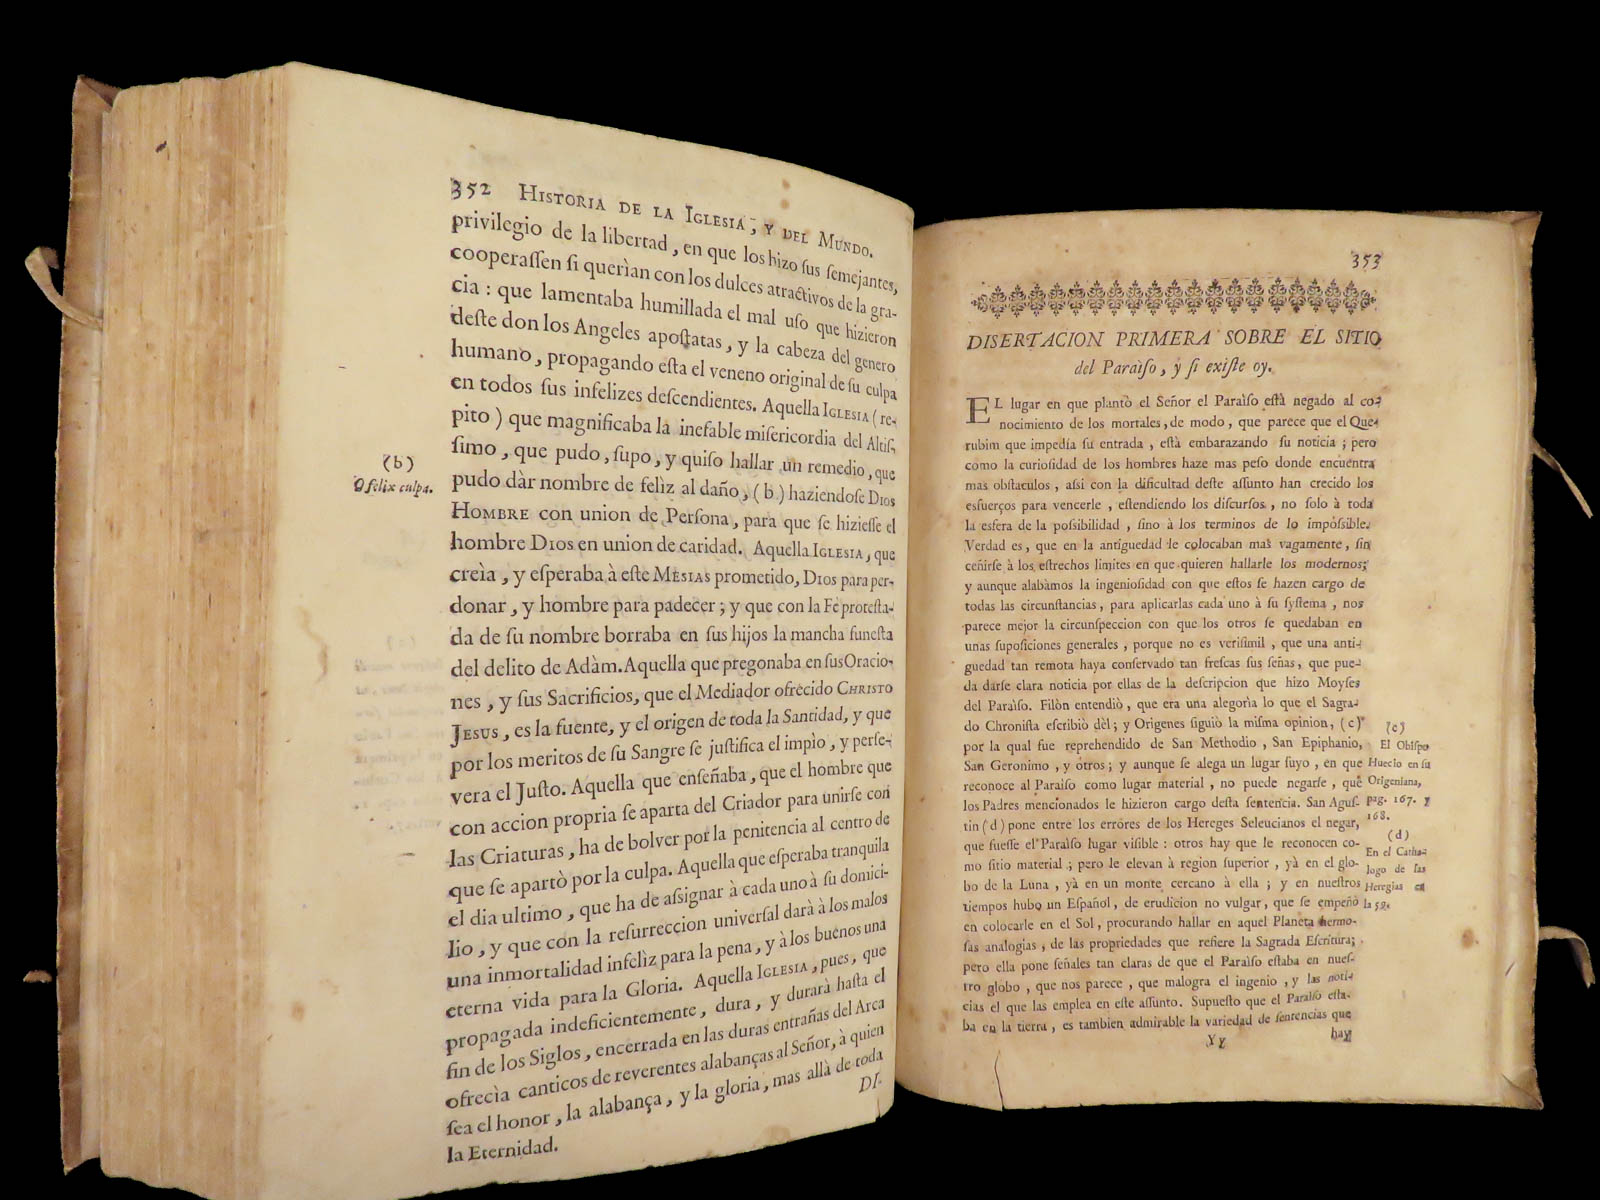 352 HISTORIA DE LA IGLESIA, Y DEL MUNDO.
privilegio de la libertad, en que los hizo ſus ſemejantes,
cooperaſſen ſi querìan con los dulces atractivos de la gra-
cia : que lamentaba humillada el mal uſo que hizieron
deſte don los Angeles apoſtatas, y la cabeza del genero
humano, propagando eſta el veneno original de ſu culpa
en todos ſus infelizes deſcendientes. Aquella IGLESIA (re-
pito) que magnificaba la inefable miſericordia del Altiſ-
ſimo, que pudo, ſupo, y quiſo hallar un remedio, que
pudo dàr nombre de felìz al daño, (b) haziendoſe DIOS
HOMBRE con union de Perſona, para que ſe hizieſſe el
hombre DIOS en union de caridad. Aquella IGLESIA, que
creìa, y eſperaba à eſte MESIAS prometido, DIOS para per-
donar, y hombre para padecer; y que con la Fè proteſta-
da de ſu nombre borraba en ſus hijos la mancha funeſta
del delito de Adàm. Aquella que pregonaba en ſus Oracio-
nes, y ſus Sacrificios, que el Mediador ofrecido CHRISTO
JESUS, es la fuente, y el origen de toda la Santidad, y que
por los meritos de ſu Sangre ſe juſtifica el impìo, y perſe-
vera el Juſto. Aquella que enſeñaba, que el hombre que
con accion propria ſe aparta del Criador para unirſe con
las Criaturas, ha de bolver por la penitencia al centro de
que ſe apartò por la culpa. Aquella que eſperaba tranquila
el dia ultimo, que ha de aſsignar à cada uno à ſu domici-
lio, y que con la reſurreccion univerſal darà à los malos
una inmortalidad infelìz para la pena, y à los buenos una
eterna vida para la Gloria. Aquella IGLESIA, pues, que
propagada indeficientemente, dura, y durarà haſta el
fin de los Siglos, encerrada en las duras entrañas del Arca
ofrecìa canticos de reverentes alabanças al Señor, à quien
ſea el honor, la alabança, y la gloria, mas allà de toda
la Eternidad.
DI-
(b)
O felix culpa.
353
DISERTACION PRIMERA SOBRE EL SITIO
del Paraìſo, y ſi exiſte oy.
EL lugar en que plantò el Señor el Paraìſo eſtà negado al co-
nocimiento de los mortales, de modo, que parece que el Que-
rubim que impedìa ſu entrada, eſtà embarazando ſu noticia ; pero
como la curioſidad de los hombres haze mas peſo donde encuentra
mas obſtaculos, aſsi con la dificultad deſte aſſunto han crecido los
esfuerços para vencerle, eſtendiendo los diſcurſos, no ſolo à toda
la esfera de la poſsibilidad, ſino à los terminos de lo impoſsible.
Verdad es, que en la antiguedad le colocaban mas vagamente, ſin
ceñirſe à los eſtrechos limites en que quieren hallarle los modernos;
y aunque alabàmos la ingenioſidad con que eſtos ſe hazen cargo de
todas las circunſtancias, para aplicarlas cada uno à ſu ſyſtema, nos
parece mejor la circunſpeccion con que los otros ſe quedaban en
unas ſupoſiciones generales, porque no es veriſimil, que una anti-
guedad tan remota haya conſervado tan freſcas ſus ſeñas, que pue-
da darſe clara noticia por ellas de la deſcripcion que hizo Moyſes
del Paraìſo. Filòn entendiò, que era una alegorìa lo que el Sagra-
do Chroniſta eſcribiò dèl; y Origenes ſiguiò la miſma opinion, (c)
por la qual fue reprehendido de San Methodio, San Epiphanio,
San Geronimo, y otros; y aunque ſe alega un lugar ſuyo, en que
reconoce al Paraìſo como lugar material, no puede negarſe, que
los Padres mencionados le hizieron cargo deſta ſentencia. San Aguſ-
tin (d) pone entre los erròres de los Hereges Seleucianos el negar,
que fueſſe el Paraìſo lugar viſible : otros hay que le reconocen co-
mo ſitio material ; pero le elevan à region ſuperior, yà en el glo-
bo de la Luna, yà en un monte cercano à ella ; y en nueſtros
tiempos hubo un Eſpañol, de erudicion no vulgar, que ſe empeñò
en colocarle en el Sol, procurando hallar en aquel Planeta hermo-
ſas analogias, de las propriedades que refiere la Sagrada Eſcritura;
pero ella pone ſeñales tan claras de que el Paraìſo eſtaba en nueſ-
tro globo, que nos parece, que malogra el ingenio, y las noti-
cias el que las emplea en eſte aſſunto. Supueſto que el Paraìſo eſta-
ba en la tierra, es tambien admirable la variedad de ſentencias que
Yy hay
(c)
El Obiſpo
Huecio en ſu
Origeniana,
pag. 167. y
168.
(d)
En el Catha-
logo de las
Heregias en
la 59.